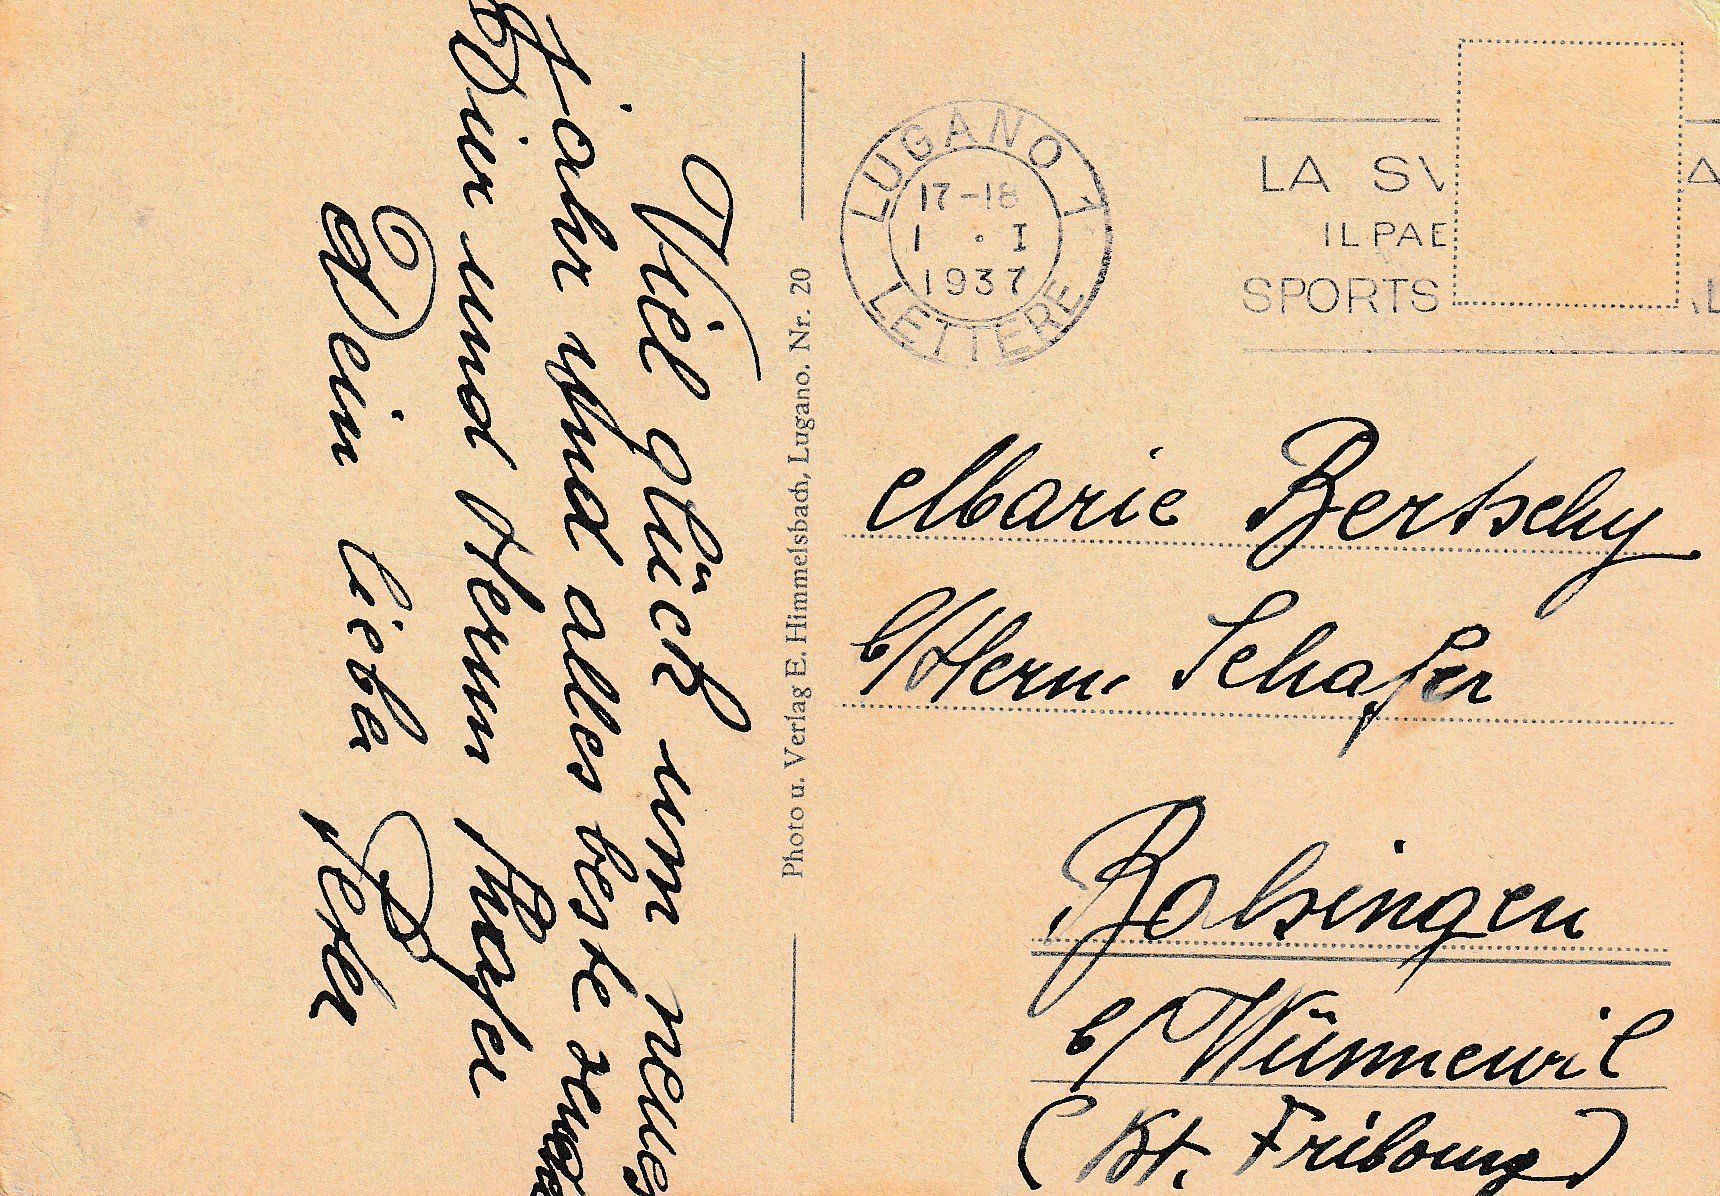 Viel glück um neues
Jahr Und alles beste
Dir und Herrn Shafer
Dein liebe Peter
Photo u. Verlag E. Himmelsbach, Lugano. Nr. 20
LUGANO 1
17-18
1 . I
1937
LETTERE
LA SV A
IL PAE
SPORTS AL
Marie Bertschy
b/Hern. Schafer
Balsingen
b/Wünnewil
(Kt. Fribourg)